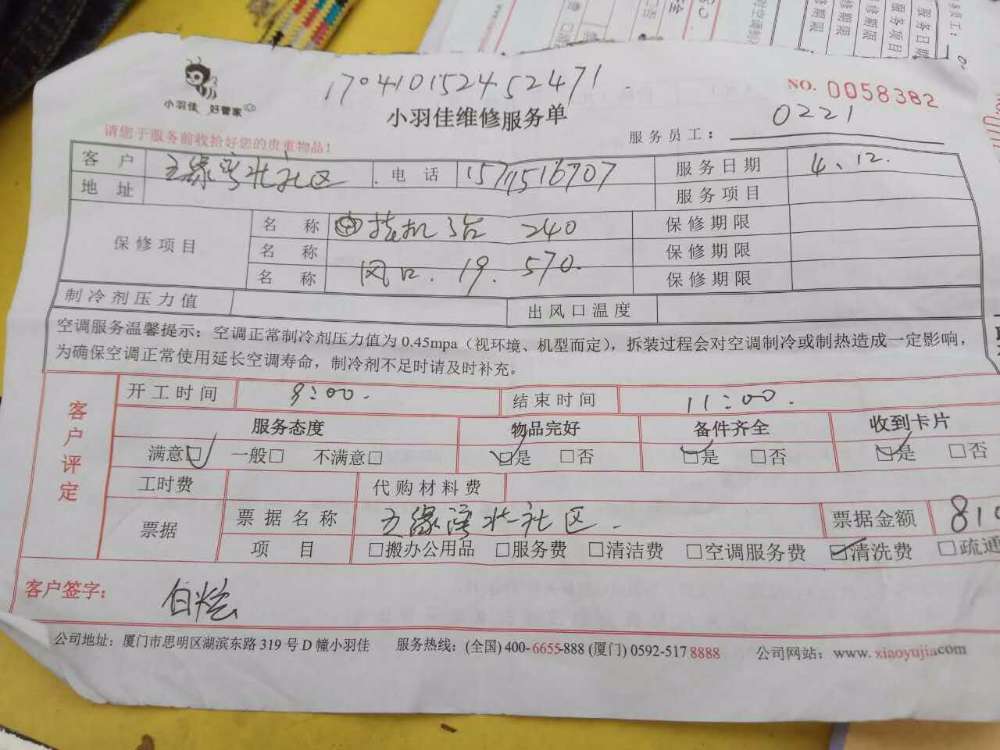 170410152452471
小羽佳 好管家
小羽佳维修服务单
NO. 0058382
请您于服务前收拾好您的贵重物品!
服务员工: 0221
客户 五缘湾北社区 电话 15711516707 服务日期 4.12.
地址 服务项目
保修项目 名称 挂机 3台 240 保修期限
名称 保修期限
名称 风口. 19. 570. 保修期限
制冷剂压力值 出风口温度
空调服务温馨提示:空调正常制冷剂压力值为 0.45mpa(视环境、机型而定),拆装过程会对空调制冷或制热造成一定影响,
为确保空调正常使用延长空调寿命,制冷剂不足时请及时补充。
客户评定
开工时间 8:00. 结束时间 11:00.
服务态度 物品完好 备件齐全 收到卡片
满意☑ 一般□ 不满意□ ☑是 □否 ☑是 □否 ☑是 □否
工时费 代购材料费
票据 票据名称 五缘湾北社区. 票据金额 810
项目 □搬办公用品 □服务费 □清洁费 □空调服务费 ☑清洗费 □疏通
客户签字:
公司地址:厦门市思明区湖滨东路 319 号 D 幢小羽佳 服务热线:(全国) 400-6655-888 (厦门) 0592-517 8888 公司网站:www.xiaoyujia.com